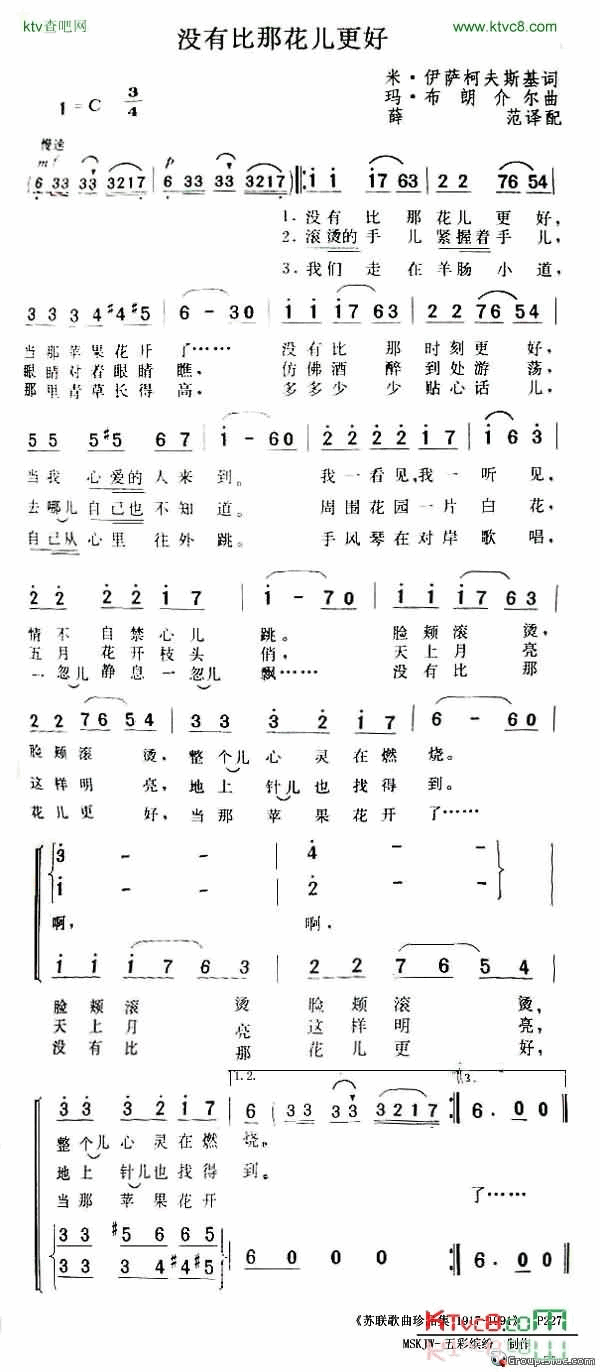 ktv查吧网
www.ktvc8.com
没有比那花儿更好
米·伊萨柯夫斯基词
玛·布朗介尔曲
薛 范译配
1=C 3/4
慢速
mf p
(6 33 33 3217 | 6 33 33 3217) ‖: i i i7 63 | 2 2 76 54 |
1. 没有 比 那花儿 更 好,
2. 滚烫的 手 儿 紧握着 手 儿,
3. 我们 走 在 羊肠 小 道,
3 3 3 4 #4 #5 | 6 - 30 | i i i7 63 | 2 2 76 54 |
当那 苹果花开 了…… 没有比 那 时刻更 好,
眼睛对着眼睛 瞧, 仿佛酒 醉 到处游 荡,
那里青草长得 高, 多多少 少 贴心话 儿,
5 5 5 #5 6 7 | i - 60 | 2 2 2 2 i 7 | i 6 3 |
当我 心爱的 人来 到。 我一看见,我一 听 见,
去哪儿 自己也 不知 道。 周围花园一片 白 花,
自己从 心里 往外 跳。 手风琴在对岸 歌 唱,
2 2 2 2 i 7 | i - 70 | i i i7 63 |
情不 自禁心儿 跳。 脸颊滚 烫,
五月 花开枝头 俏, 天上月 亮
一忽儿静息一忽儿 飘…… 没有比 那
2 2 76 54 | 3 3 3 2 i 7 | 6 - 60 |
脸颊滚 烫,整个儿心灵在燃 烧。
这样明 亮,地上针儿也找得 到。
花儿更 好,当那 苹果花开 了……
3 - - | 4 - - |
i - - | 2 - - |
啊, 啊,
i i i 7 6 3 | 2 2 7 6 5 4
脸颊滚 烫 脸颊滚 烫,
天上月 亮 这样明 亮,
没有比 那 花儿更 好,
1.2. 3.
3 3 3 2 i 7 | 6 (33 33 3217 :‖ 6. 0 0 ‖
整个儿心灵在燃 烧。
地上 针儿也找得 到。
当那 苹果花开 了……
3 3 #5 6 6 5
3 3 3 4 #4 #5 | 6 0 0 0 0 :‖ 6. 0 0 ‖
《苏联歌曲珍品集1917-1991》 P227
KTvc8.com
MSKJW-五彩缤纷 制作